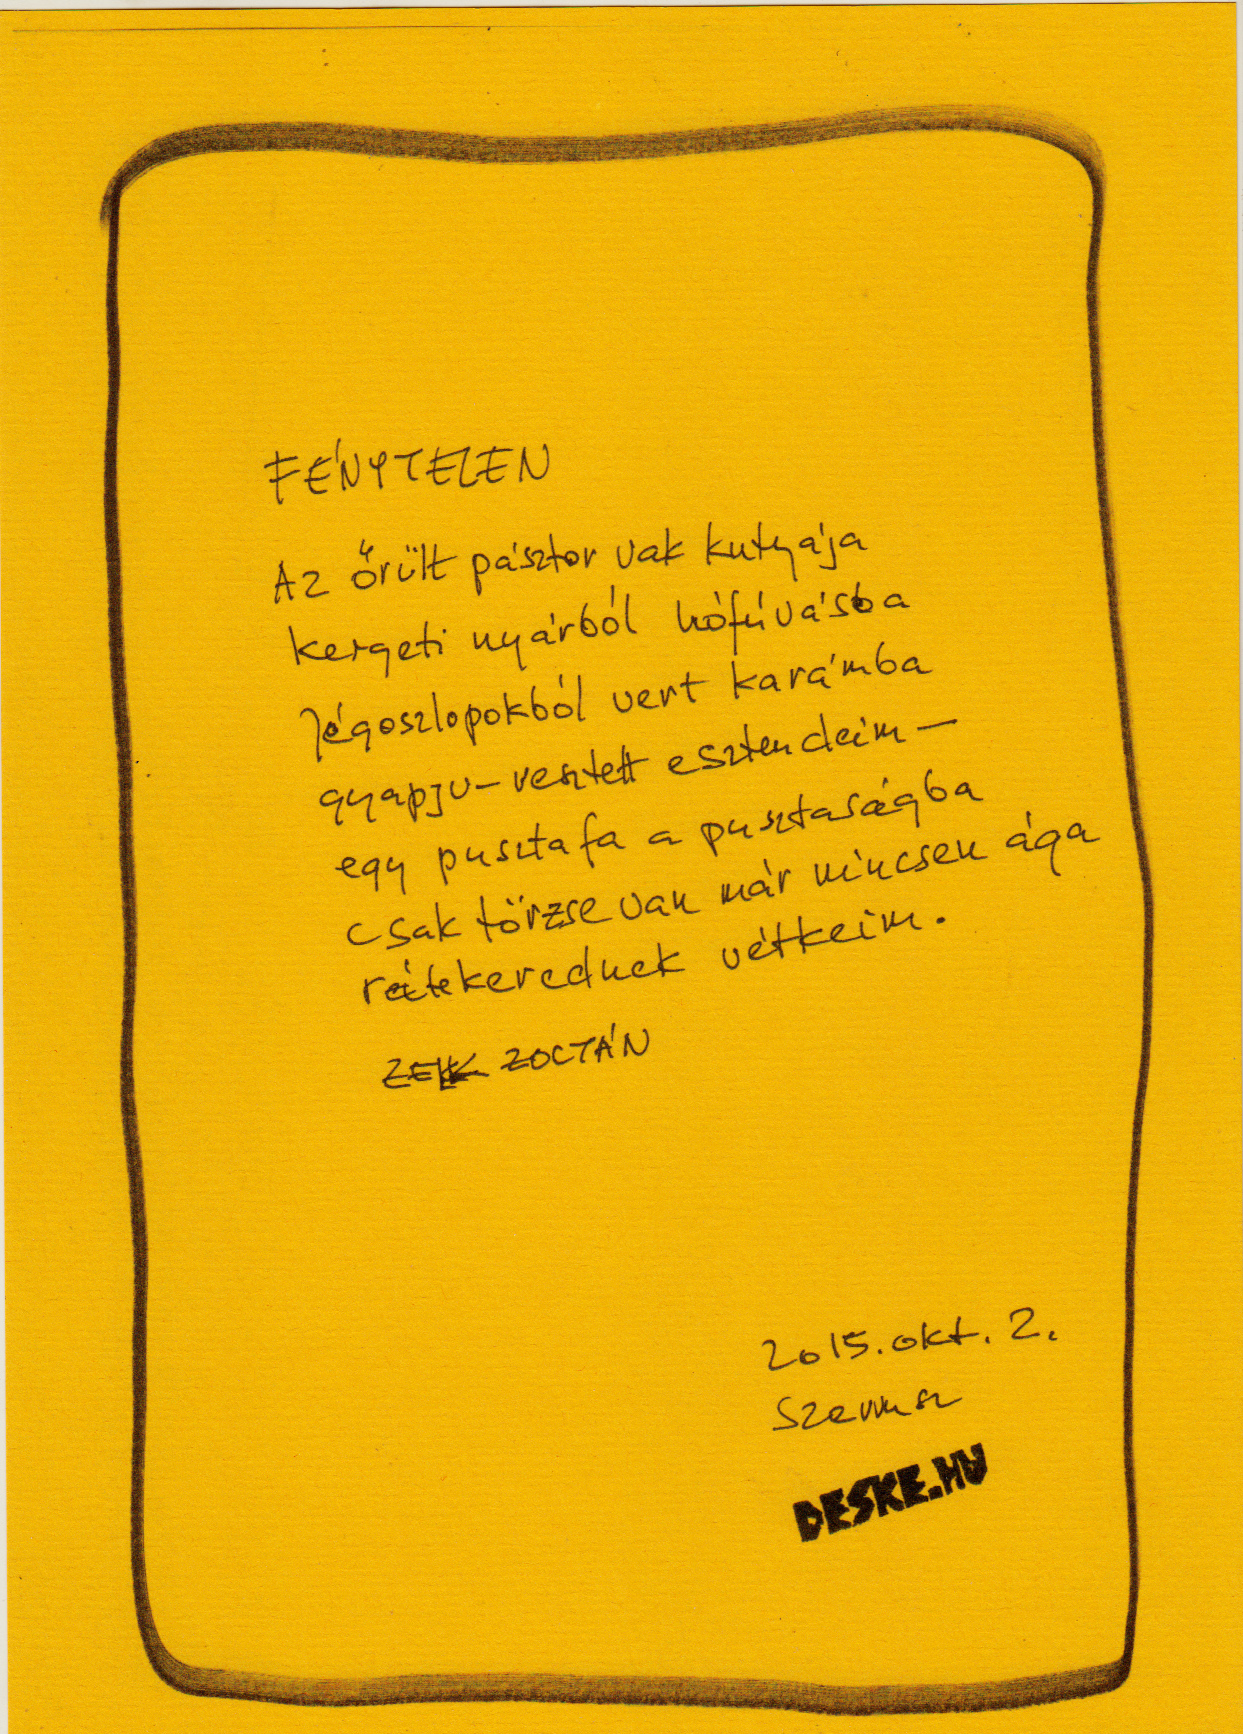 FÉNYTELEN
Az őrült pásztor vak kutyája
kergeti nyárból hófúvásba
jégoszlopokból vert karámba
gyapju-vesztett esztendeim –
egy puszta fa a pusztaságba
csak törzse van már nincsen ága
rátekerednek vétkeim.
ZELK ZOLTÁN
2015. okt. 2.
DESKE.HU